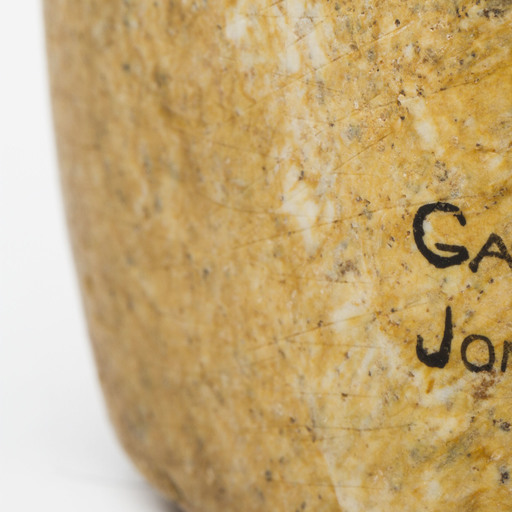 GA
Jor